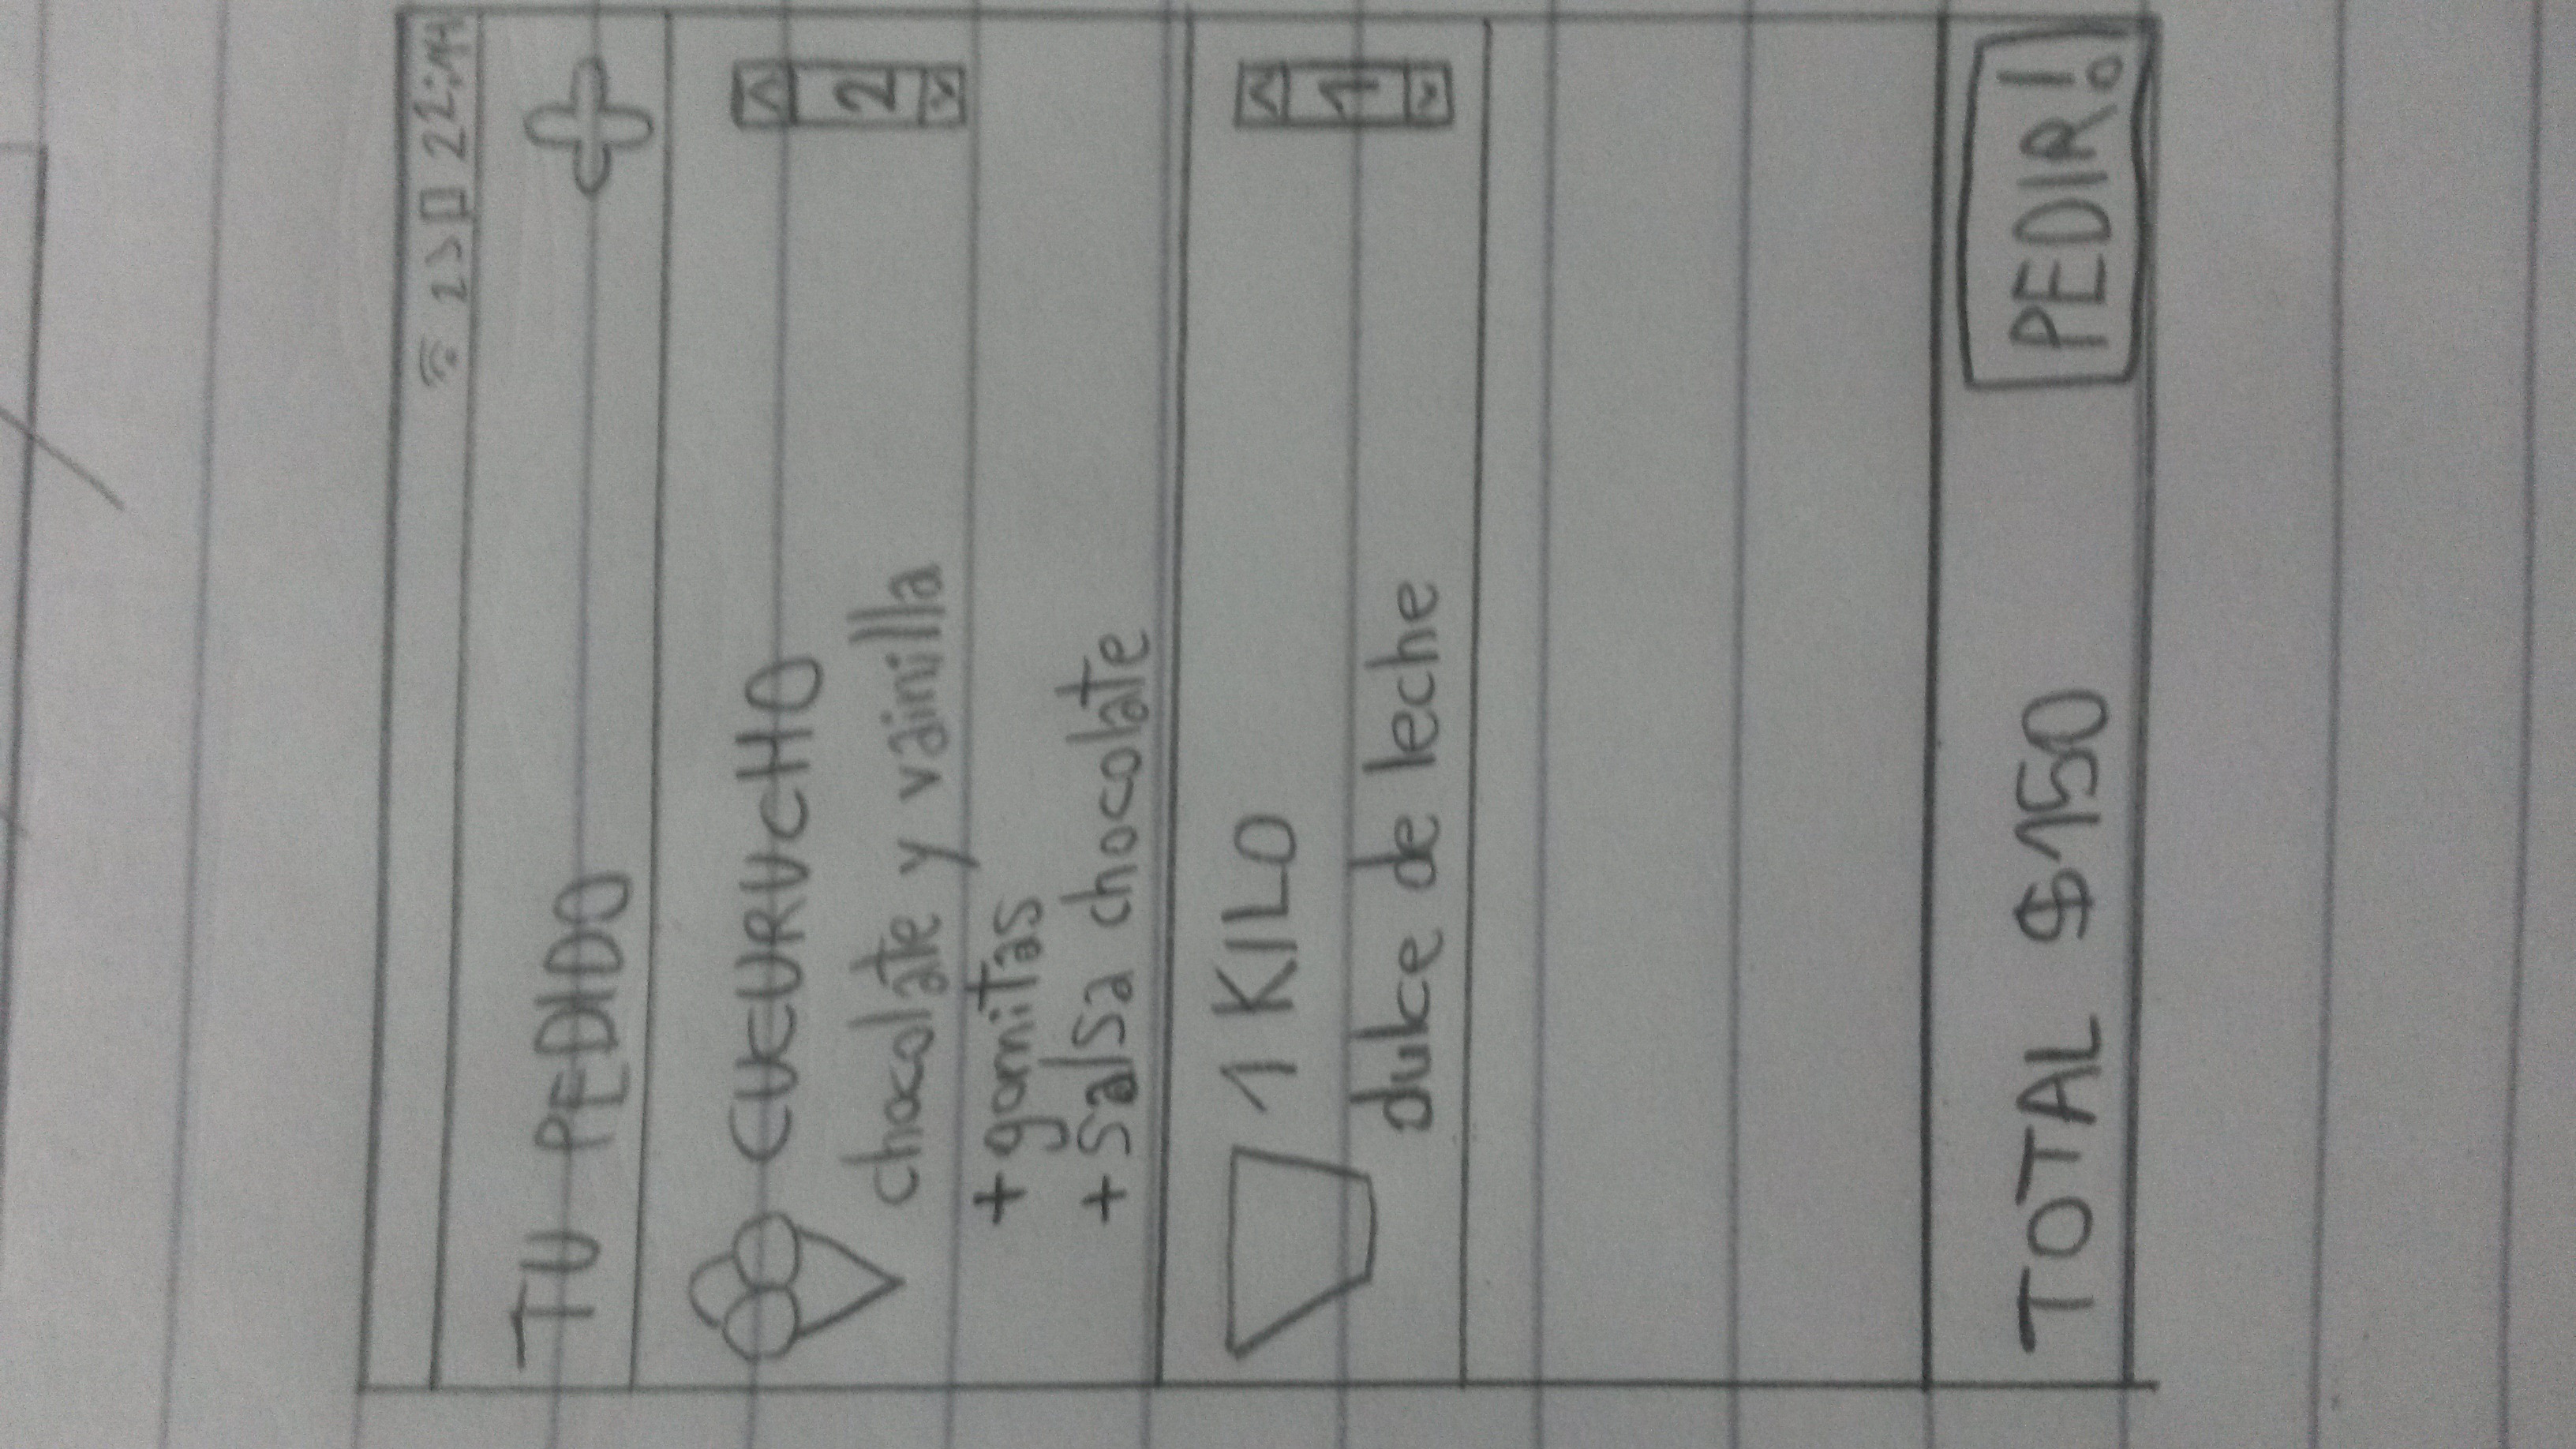 TU PEDIDO
CUCURUCHO
2
chocolate y vainilla
+ gomitas
+ salsa chocolate
1 KILO
1
dulce de leche
TOTAL $150
PEDIR!